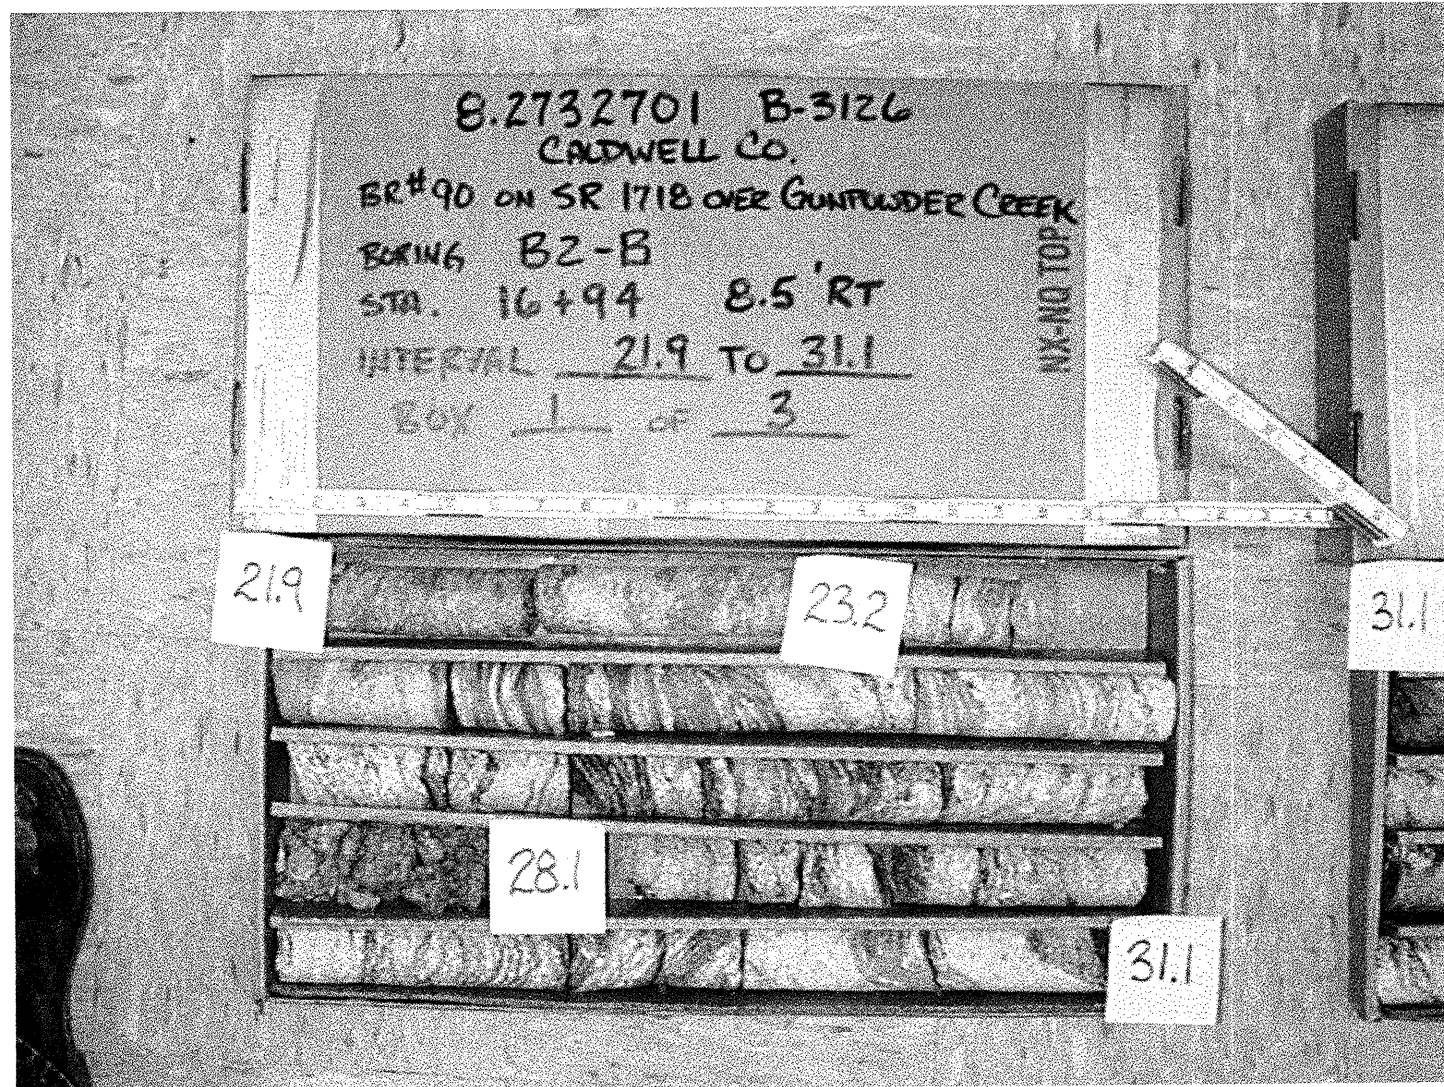 8.2732701 B-3126
CALDWELL CO.
BR.#90 ON SR 1718 OVER GUNPOWDER CREEK
BORING B2-B
STA. 16+94 8.5' RT
INTERVAL 21.9 TO 31.1
BOX 1 OF 3
NX-NQ TOP
21.9
23.2
31.1
28.1
31.1